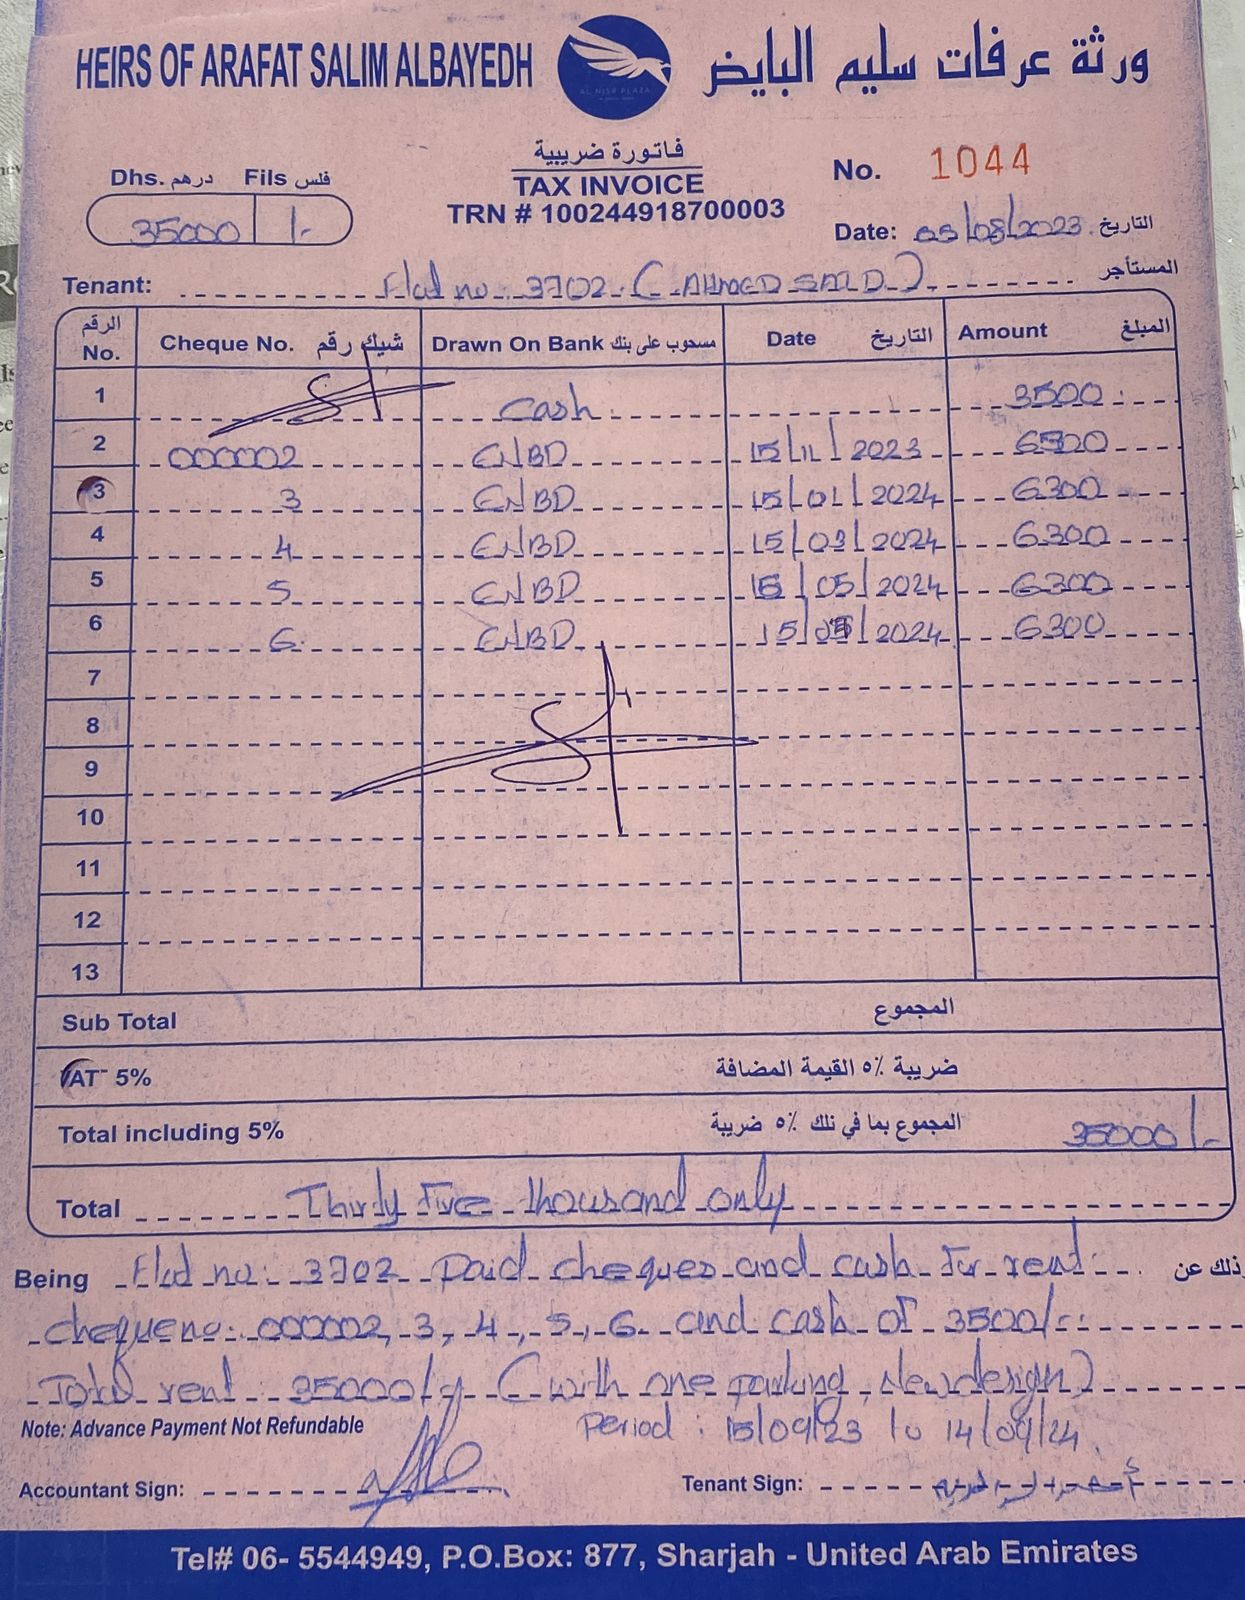 HEIRS OF ARAFAT SALIM ALBAYEDH
AL NISR PLAZA
ورثة عرفات سليم البايض
فاتورة ضريبية
TAX INVOICE
TRN # 100244918700003
Dhs. درهم Fils فلس
35000 /-
No. 1044
Date: 05/08/2023 التاريخ
Tenant: Flat no: 3702 (AHMED SAID) المستأجر
الرقم No. Cheque No. شيك رقم Drawn On Bank مسحوب على بنك Date التاريخ Amount المبلغ
1 Cash 3500
2 000002 ENBD 15/11/2023 6300
3 3 ENBD 15/01/2024 6300
4 4 ENBD 15/03/2024 6300
5 5 ENBD 15/05/2024 6300
6 6 ENBD 15/07/2024 6300
7
8
9
10
11
12
13
Sub Total المجموع
VAT 5% ضريبة ٥٪ القيمة المضافة
Total including 5% المجموع بما في ذلك ٥٪ ضريبة 35000/-
Total Thirty Five thousand only
Being Flat no: 3702 Paid cheques and cash for rent. وذلك عن
cheque no: 000002, 3, 4, 5, 6 and cash of 3500/-
Total rent 35000/- (with one parking, New design)
Note: Advance Payment Not Refundable
Period: 15/09/23 to 14/09/24.
Accountant Sign:
Tenant Sign:
Tel# 06- 5544949, P.O.Box: 877, Sharjah - United Arab Emirates